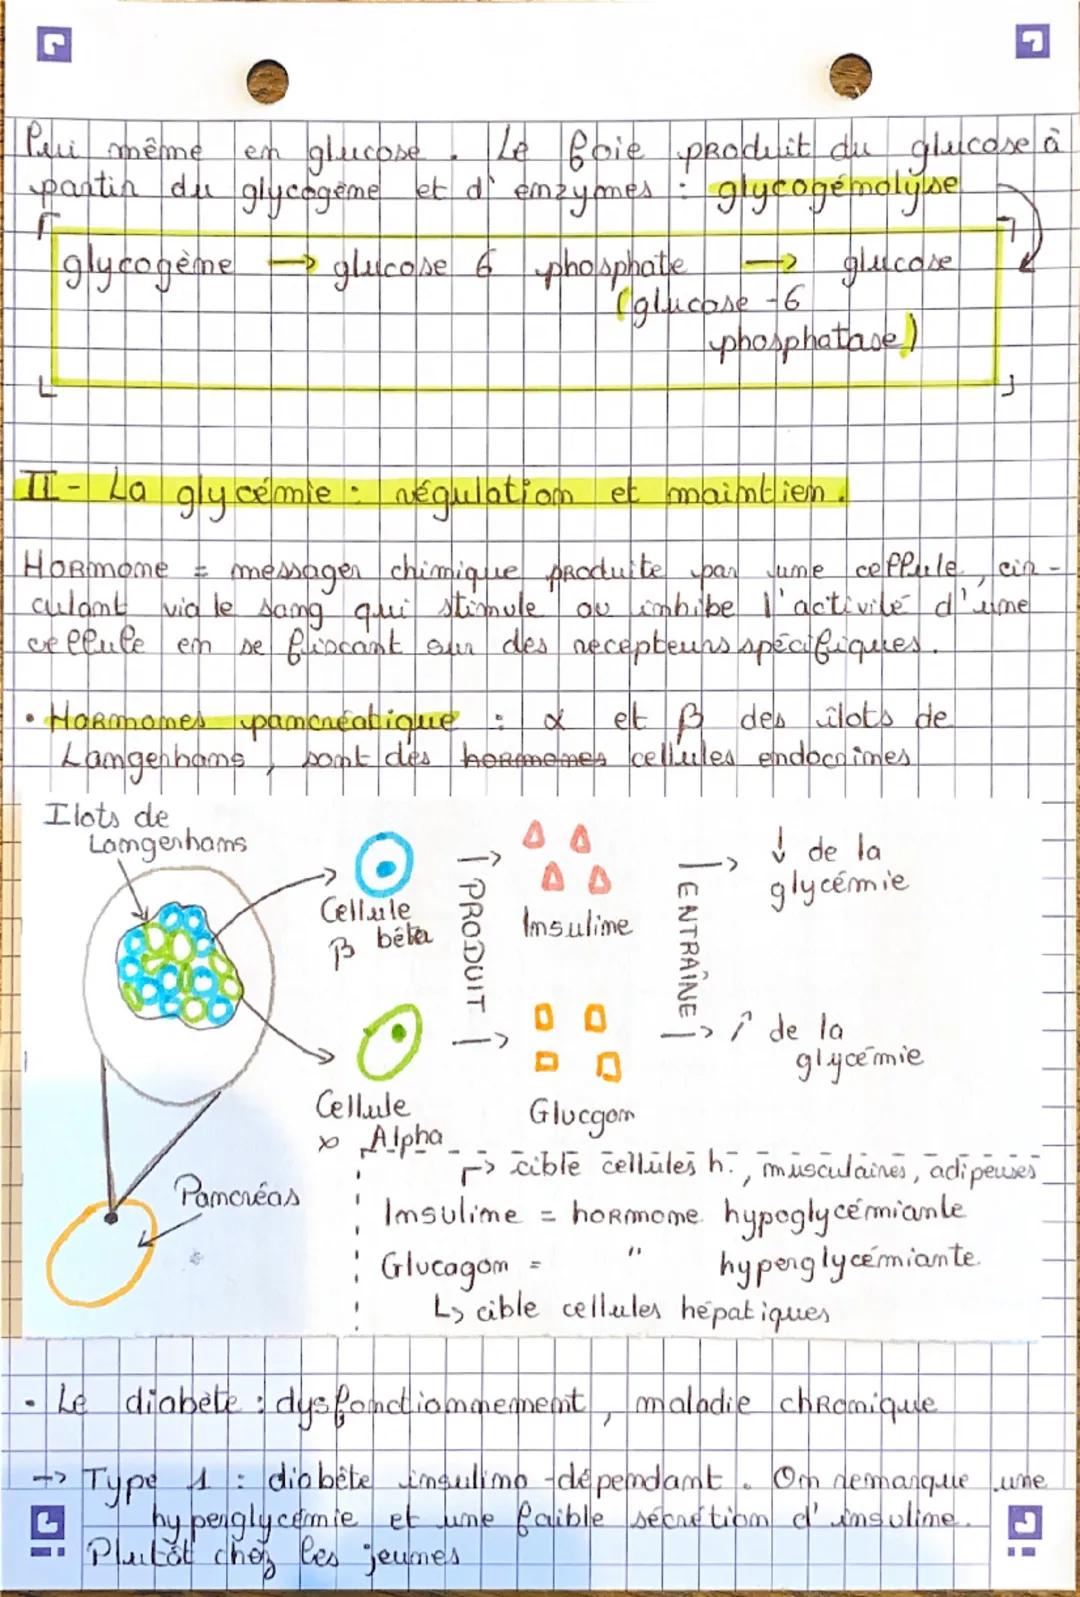 lui même en glucose. Le foie produit du glucose à
partir du glycogène et d'enzymes : glycogénolyse
glycogène → glucose 6 phosphate → glucose
(glucose-6
phosphatase)
II- La glycémie : régulation et maintien.
Hormone = messager chimique produite par une cellule, cir-
culant via le sang qui stimule ou inhibe l'activité d'une
cellule en se fixant sur des recepteurs spécifiques.
• Hormones pancréatique : α et β des îlots de
Langenhans, sont des hormones cellules endocrines
Ilots de
Langenhans
Cellule
β bêta
PRODUIT
→
Insuline
ENTRAÎNE
→ ↓ de la
glycémie
Cellule
α Alpha
→
Glucgon
→ ↑ de la
glycémie
Pancréas
↱ cible cellules h., musculaires, adipeuses
Insuline = hormone hypoglycémiante
Glucagon = " hyperglycémiante.
↳ cible cellules hépatiques
• Le diabète : dysfonctionnement, maladie chronique
→ Type 1 : diabète insulino-dépendant. On remarque une
hyperglycémie et une faible sécrétion d'insuline.
Plutôt chez les jeunes